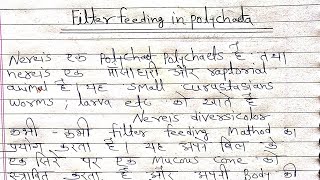 Filter feeding in polychaeta
Nereis एक polychaet polychaets है, तथा
nereis एक मांसाहारी और raptorial
animal है। यह small curustasians
worms, larva etc को खाते है
Nereis diversicolor
कभी-कभी filter feeding Mathod का
प्रयोग करता है। यह अपने बिल के
एक सिरे पर एक Mucous cone को
स्त्रावित करता है और अपनी Body की